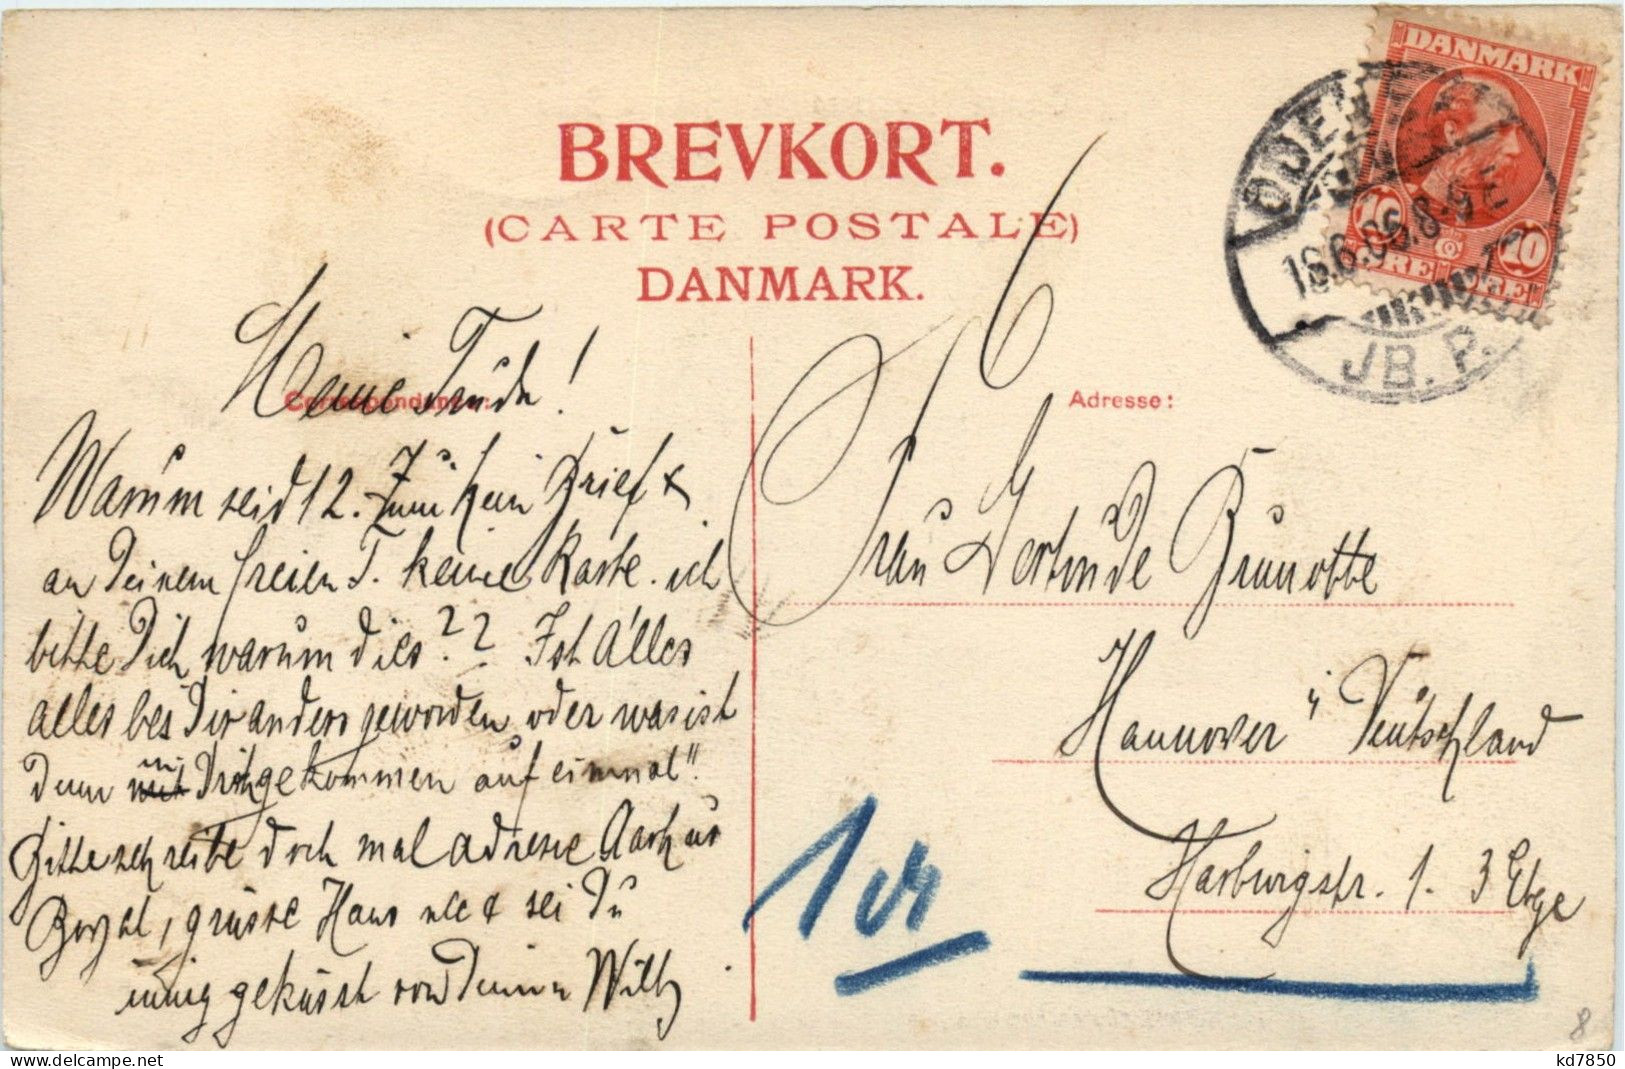 BREVKORT.
(CARTE POSTALE)
DANMARK.
DANMARK
10 10
ØRE ØRE
ODENSE
16.6.06.8-9E
JB. P.
Correspondance:
Meine Trude!
Warum seid 12. Juni kein Brief &
an Deinem freien T. keine Karte. ich
bitte Dich warum dies?? Ist Alles
alles bei Dir anders geworden oder was ist
Denn in Dich gekommen auf einmal".
Bitte schreibe doch mal adresse Aarhus
Royal, grüsse Hans & sei Du
innig geküsst von Deinem Willy
6
Adresse:
Frau Gertrude Brunotte
Hannover Deutschland
Harburgstr. 1. 3 Etge
8
kd7850